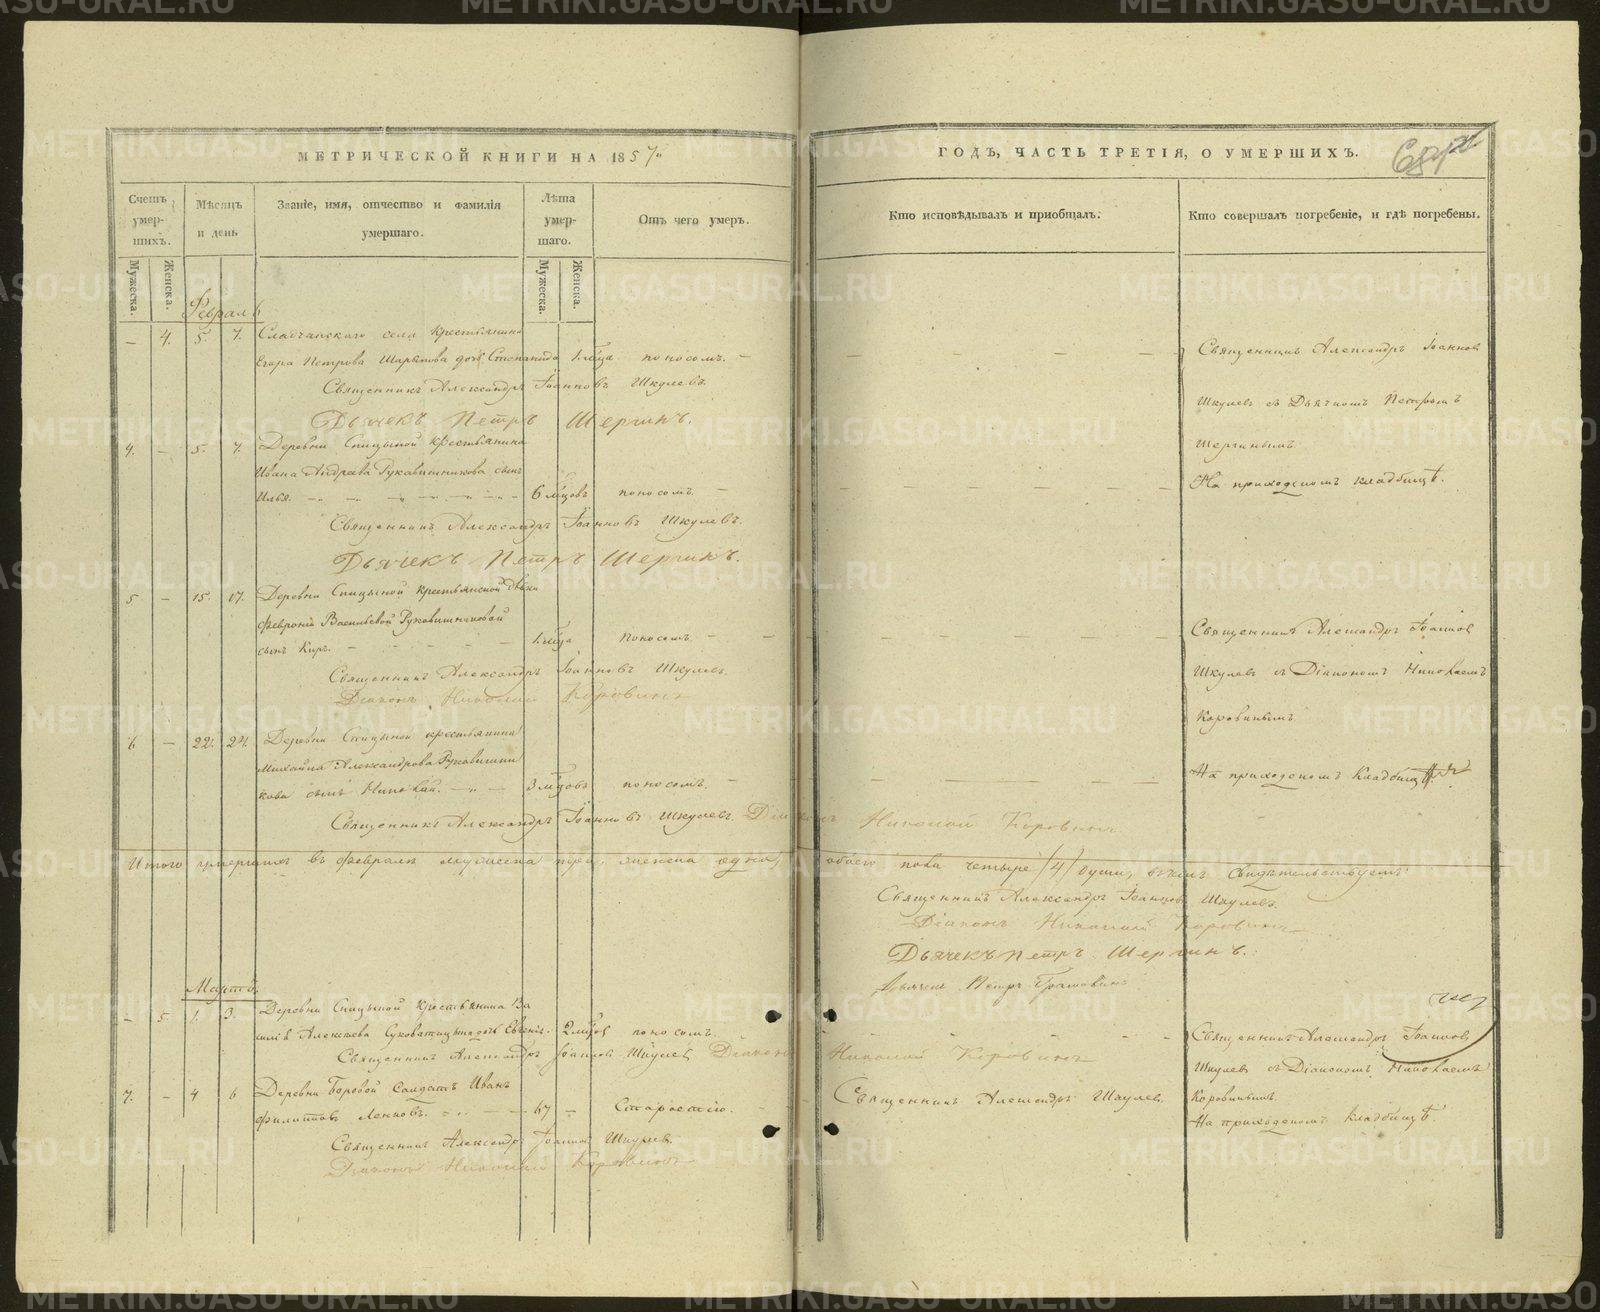 МЕТРИЧЕСКОЙ КНИГИ НА 1857
ГОДЪ, ЧАСТЬ ТРЕТІЯ, О УМЕРШИХЪ.
Счетъ умер-шихъ.
Мѣсяцъ и день
Званіе, имя, отчество и фамилія умершаго.
Лѣта умер-шаго.
Отъ чего умеръ.
Кто исповѣдывалъ и пріобщалъ.
Кто совершалъ погребеніе, и гдѣ погребены.
Мужеска.
Женска.
Мужеска.
Женска.
Февраль
– 4. 5. 7. села крестьянина
Егора Петрова дочь Степанида 1. мца поносомъ. –
Священникъ Александръ Іоанновъ Шкулевъ.
Дьячекъ Петръ Шергинъ.
Священникъ Александръ Іоаннов
Шкулевъ съ Дьячкомъ Петромъ
Шергинымъ
На приходскомъ кладбищѣ.
4. – 5. 7. Деревни Спицыной крестьянина
Ивана Андреева Рукавишникова сынъ
Илья. 6 мцовъ поносомъ. –
Священникъ Александръ Іоанновъ Шкулевъ.
Дьячекъ Петръ Шергинъ.
5 – 15. 17. Деревни Спицыной крестьянской дѣвки
Февроніи Васильевой Рукавишниковой
сынъ Киръ. – 1. мца поносомъ –
Священникъ Александръ Іоанновъ Шкулевъ
Діаконъ Николай Коровинъ
Священникъ Александръ Іоаннов
Шкулевъ съ Діакономъ Николаемъ
Коровинымъ
На приходскомъ кладбищѣ.
6 – 22. 24. Деревни Спицыной крестьянина
Михайла Александрова Рукавишни
кова сынъ Николай. – 3 мцовъ поносомъ. –
Священникъ Александръ Іоанновъ Шкулевъ. Діаконъ Николай Коровинъ
Итого умершихъ въ Февралѣ мужеска три, женска одна, обоего пола четыре /4/ души, въ чемъ свидѣтельствуемъ:
Священникъ Александръ Іоанновъ Шкулевъ.
Діаконъ Николай Коровинъ
Дьячекъ Петръ Шергинъ.
Мартъ.
– 5 1. 3. Деревни Спицыной крестьянина Ва
силія Алексѣева дочь Евгенія. 2 мцов поносомъ.
Священникъ Александръ Іоаннов Шкулев Діаконъ Николай Коровинъ
Священникъ Александръ Іоаннов
Шкулевъ съ Діакономъ Николаемъ
Коровинымъ
На приходскомъ кладбищѣ.
7. – 4 6 Деревни Боровой Солдатъ Иванъ
Филипповъ 67 – Старостію.
Священникъ Александръ Шкулев
Священникъ Александръ Іоаннов Шкулев.
Діаконъ Николай Коровинъ
METRIKI.GASO-URAL.RU